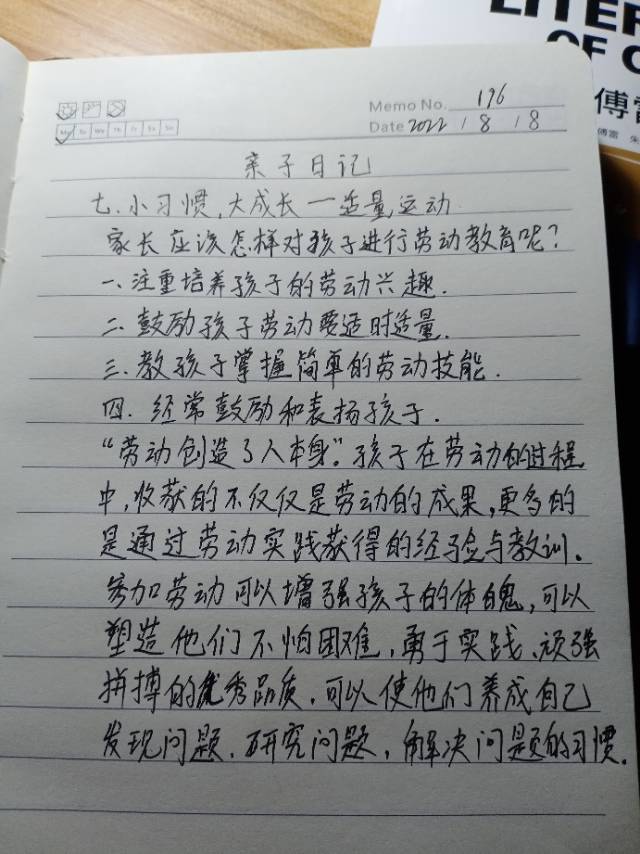 LITER
OF C
傅雷
傅雷 朱
Memo No. 196
Mo Tu We Th Fr Sa Su
Date 2022 / 8 / 8
亲子日记
七.小习惯,大成长一适量运动.
家长应该怎样对孩子进行劳动教育呢?
一.注重培养孩子的劳动兴趣.
二.鼓励孩子劳动要适时适量.
三.教孩子掌握简单的劳动技能.
四.经常鼓励和表扬孩子.
“劳动创造了人本身”.孩子在劳动的过程
中,收获的不仅仅是劳动的成果,更多的
是通过劳动实践获得的经验与教训。
参加劳动可以增强孩子的体魄,可以
塑造他们不怕困难,勇于实践、顽强
拼搏的优秀品质,可以使他们养成自己
发现问题.研究问题,解决问题的习惯.